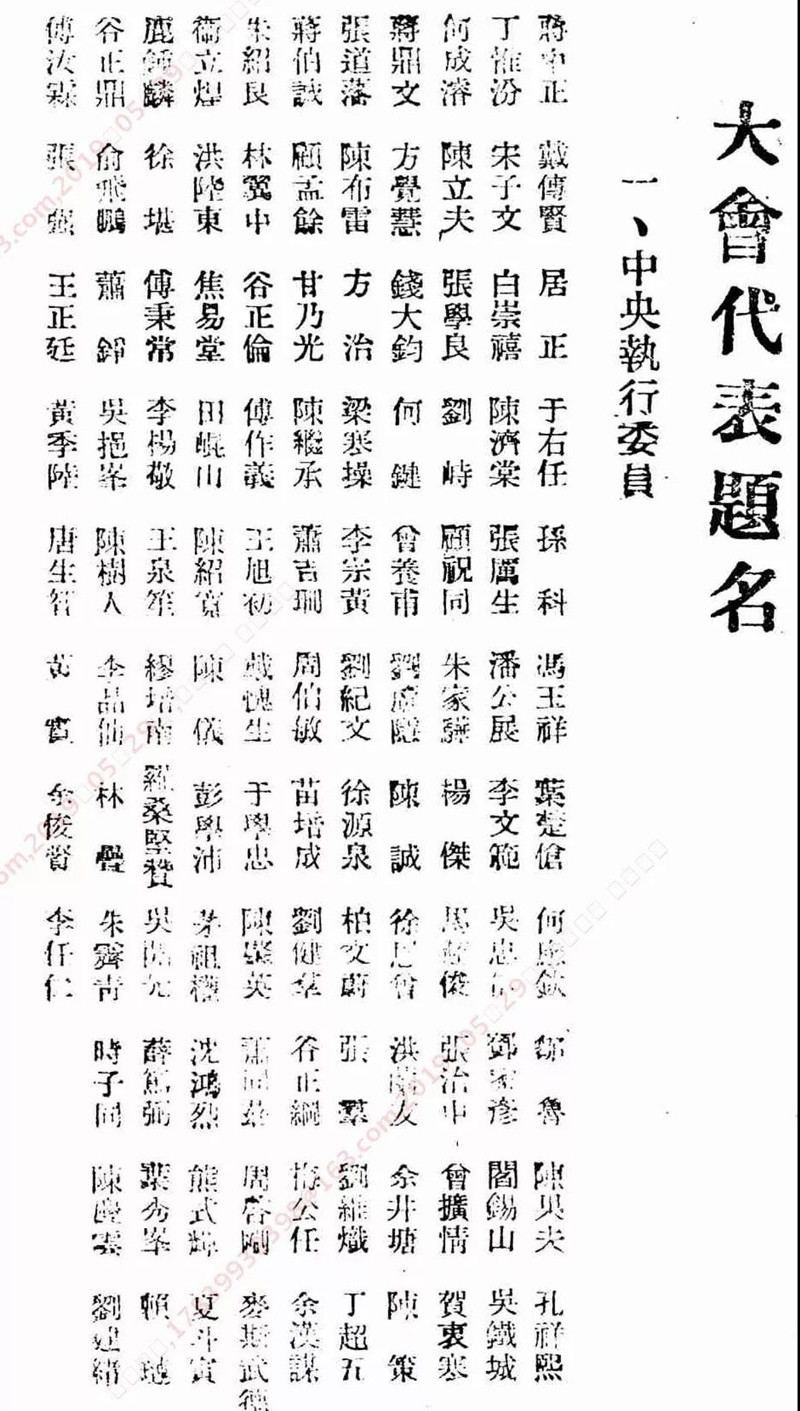 大會代表題名
一、中央執行委員
蔣中正 戴傳賢 居正 于右任 孫科 馮玉祥 葉楚傖 何應欽 鄒魯 陳果夫 孔祥熙
丁惟汾 宋子文 白崇禧 陳濟棠 張厲生 潘公展 李文範 吳忠信 鄧家彥 閻錫山 吳鐵城
何成濬 陳立夫 張學良 劉峙 顧祝同 朱家驊 楊傑 馬超俊 張治中 曾擴情 賀衷寒
蔣鼎文 方覺慧 錢大鈞 何鍵 曾養甫 劉廬隱 陳誠 徐恩曾 洪蘭友 余井塘 陳策
張道藩 陳布雷 方治 梁寒操 李宗黃 劉紀文 徐源泉 柏文蔚 張羣 劉維熾 丁超五
蔣伯誠 顧孟餘 甘乃光 陳繼承 蕭吉珊 周伯敏 苗培成 劉健羣 谷正綱 梅公任 余漢謀
朱紹良 林翼中 谷正倫 傅作義 王旭初 戴愧生 于學忠 陳肇英 蕭同茲 周啓剛 麥斯武德
衞立煌 洪陸東 焦易堂 田崐山 陳紹寬 陳儀 彭學沛 茅祖權 沈鴻烈 熊式輝 夏斗寅
鹿鍾麟 徐堪 傅秉常 李楊敬 王泉笙 繆培南 羅桑堅贊 吳開先 薛篤弼 葉秀峯 賴璉
谷正鼎 俞飛鵬 蕭錚 吳挹峯 陳樹人 李品仙 林疊 朱霽青 時子同 陳慶雲 劉建緒
傅汝霖 張強 王正廷 黃季陸 唐生智 黃實 余俊賢 李任仁